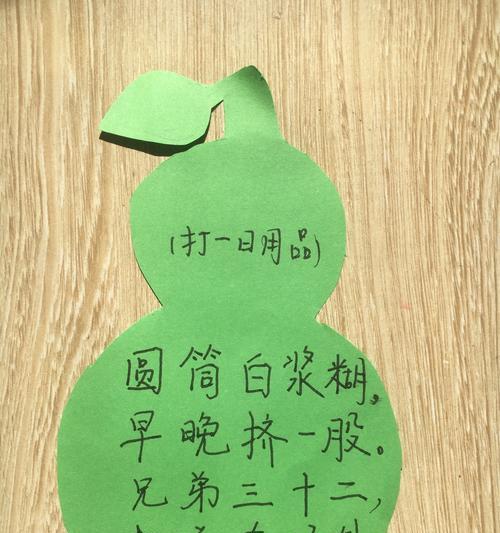 (打一日用品)
圆筒白浆糊,
早晚挤一股。
兄弟三十二,